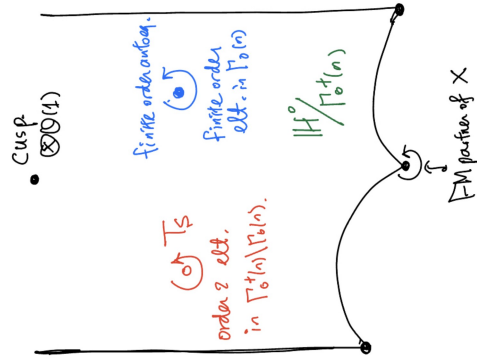 Cusp
⊗O(1)
finite order autoeq.
finite order
elt. in Γ₀(n)
T_S
order 2 elt.
in Γ₀⁺(n)\Γ₀(n).
ℍ⁰/Γ₀⁺(n)
FM partner of X